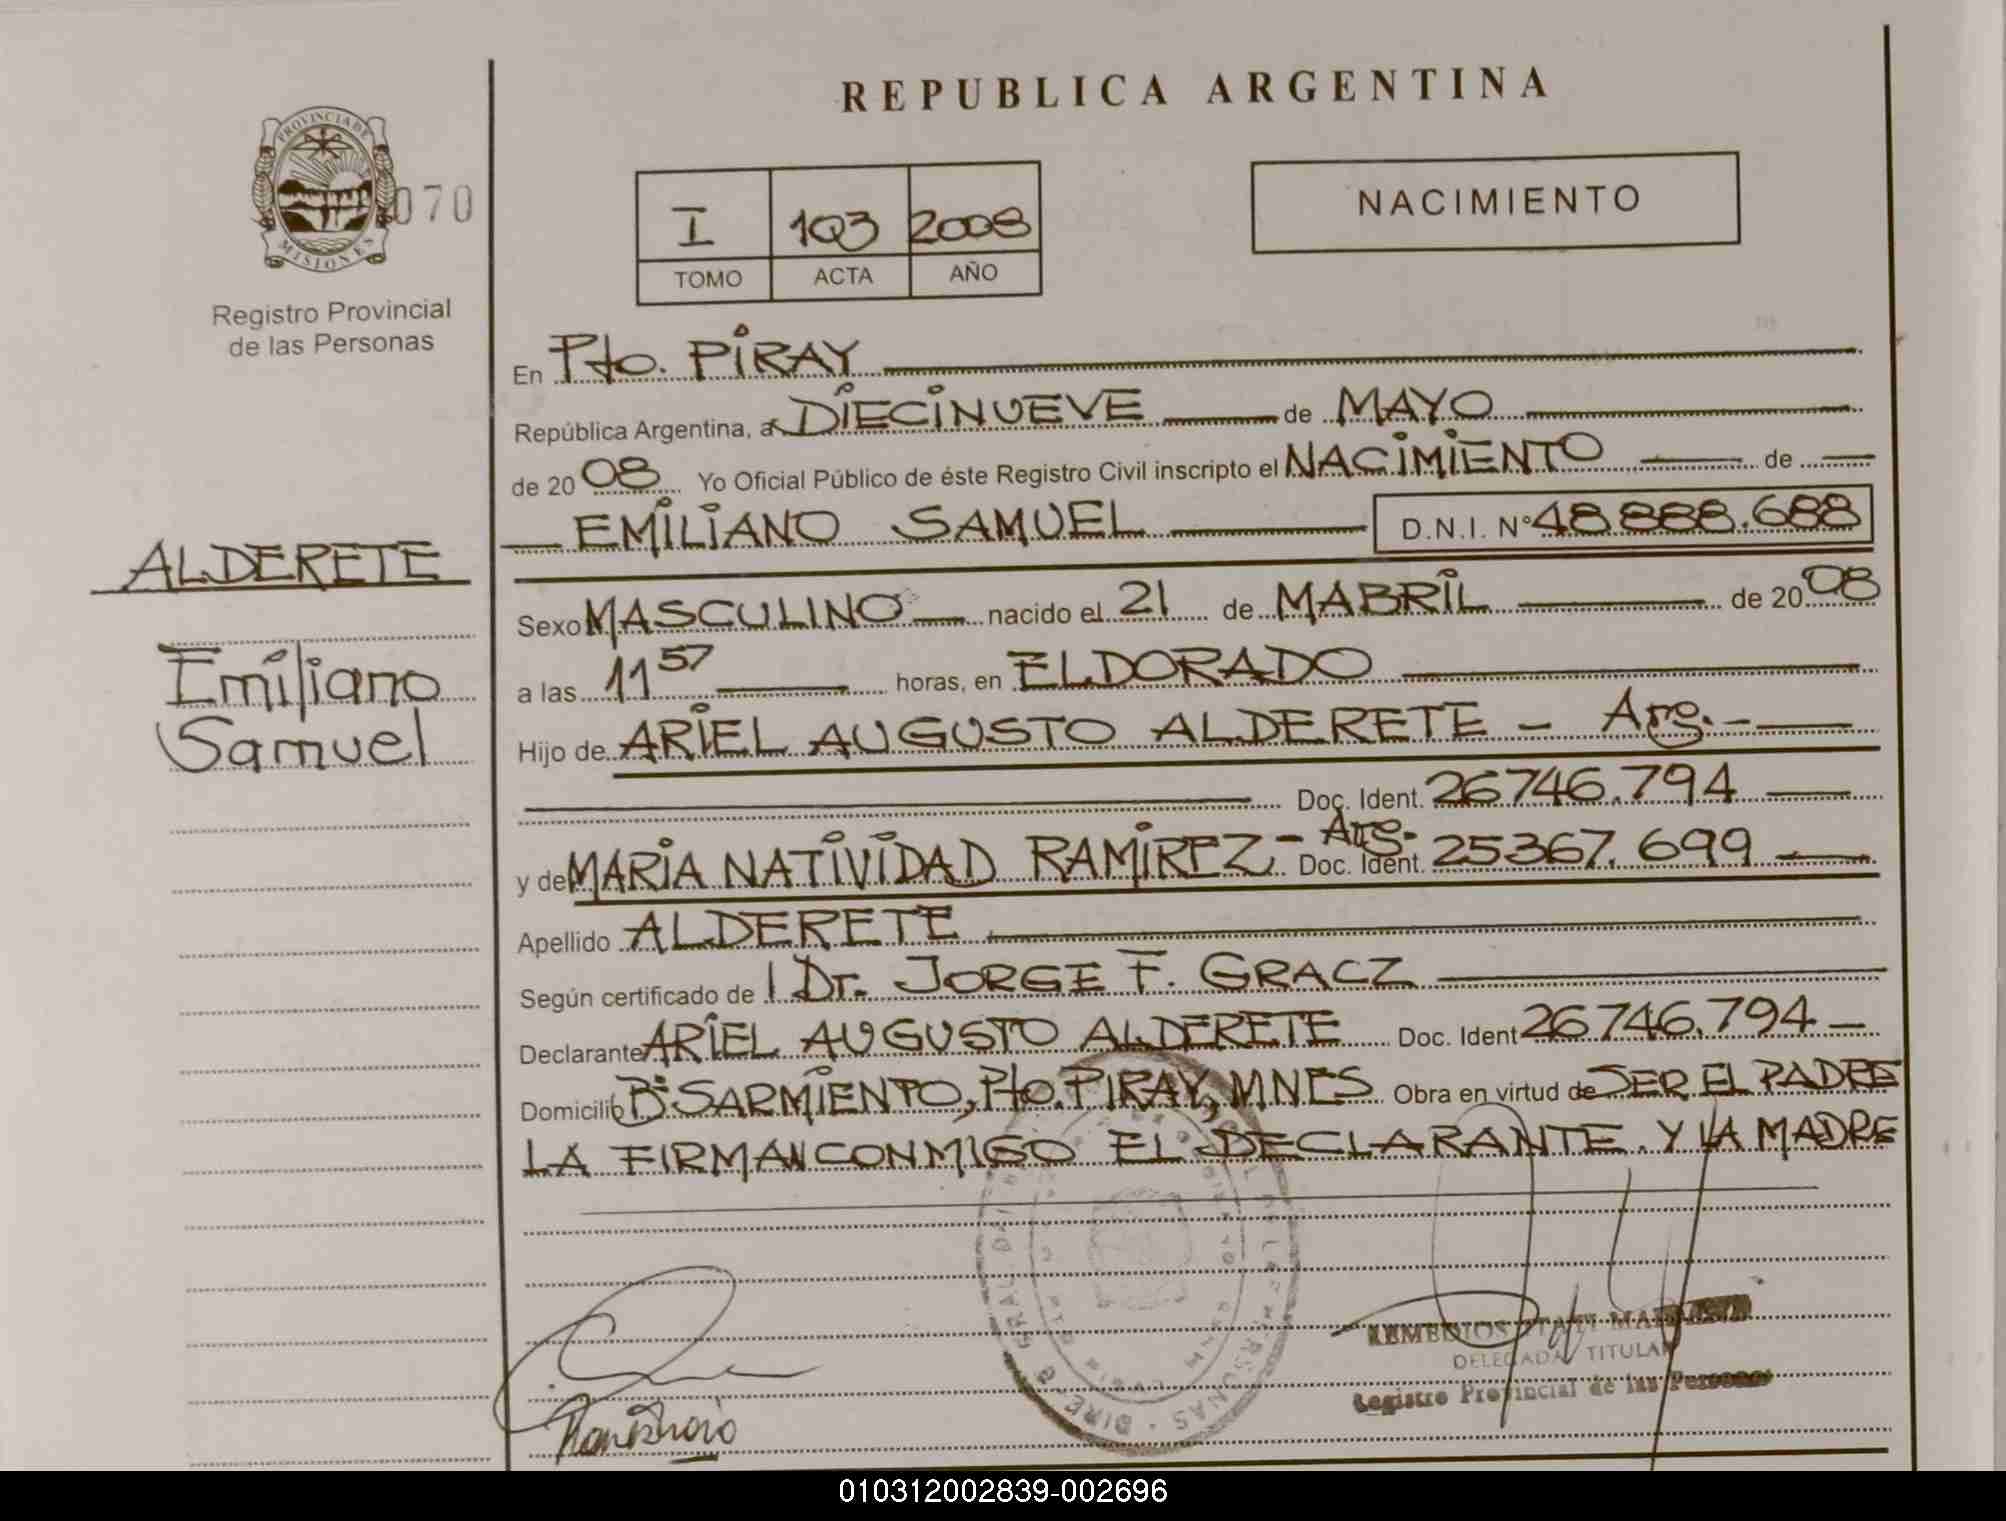 REPUBLICA ARGENTINA
PROVINCIA DE
MISIONES
070
Registro Provincial
de las Personas
I 103 2008
TOMO ACTA AÑO
NACIMIENTO
En Pto. PIRAY
República Argentina, a DIECINUEVE de MAYO
de 2008 Yo Oficial Público de éste Registro Civil inscripto el NACIMIENTO de
EMILIANO SAMUEL D.N.I. N° 48.888.688
ALDERETE
Emiliano
Samuel
Sexo MASCULINO nacido el 21 de MABRIL de 2008
a las 11 57 horas, en ELDORADO
Hijo de ARIEL AUGUSTO ALDERETE - Arg.-
Doc. Ident. 26746.794
y de MARIA NATIVIDAD RAMIREZ - Arg. Doc. Ident. 25367.699
Apellido ALDERETE
Según certificado de Dr. JORGE F. GRACZ
Declarante ARIEL AUGUSTO ALDERETE Doc. Ident 26746.794
Domicilio B° SARMIENTO, Pto. PIRAY, MNES Obra en virtud de SER EL PADRE
LA FIRMAN CONMIGO EL DECLARANTE Y LA MADRE
REMEDIOS
DELEGADA TITULAR
Registro Provincial de las Personas
010312002839-002696